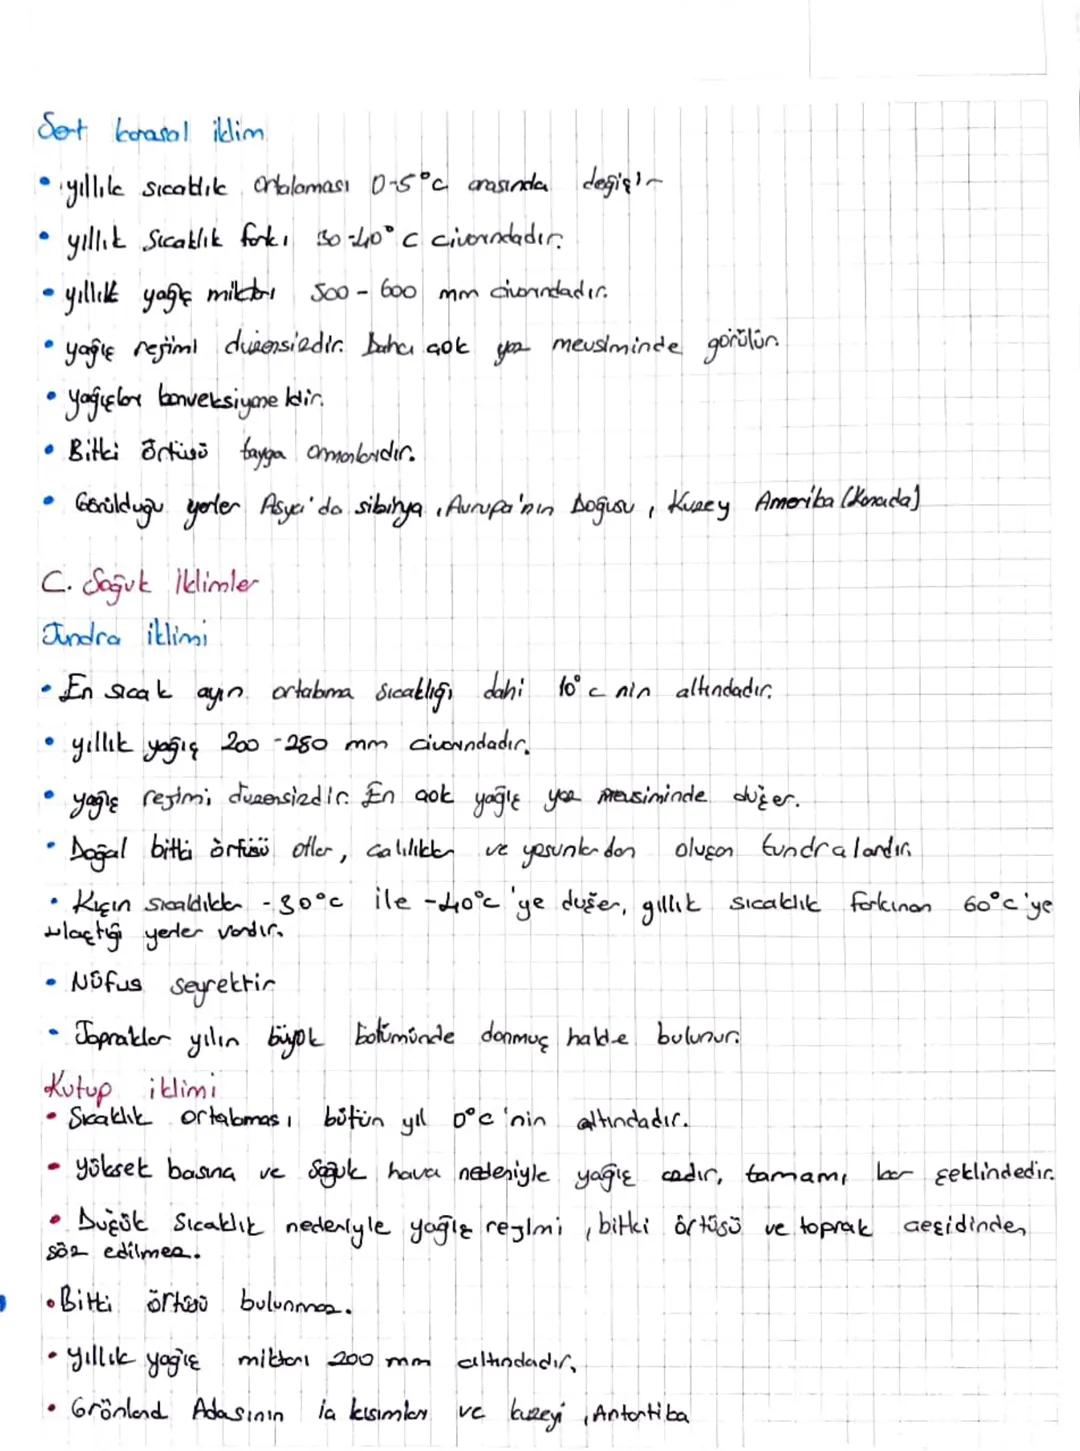 Sert karasal iklim
• yıllık sıcaklık ortalaması 0-5°C arasında değişir
• yıllık sıcaklık farkı 30-40°C civarındadır.
• yıllık yağış miktarı 500 - 600 mm civarındadır.
• yağış rejimi düzensizdir. Daha çok yaz mevsiminde görülür.
• yağışlar konveksiyoneldir.
• Bitki örtüsü tayga ormanlarıdır.
• Görüldüğü yerler Asya'da sibirya, Avrupa'nın Doğusu, Kuzey Amerika (Kanada)
C. Soğuk İklimler
Tundra iklimi
• En sıcak ayın ortalama sıcaklığı dahi 10°C nin altındadır.
• yıllık yağış 200 - 250 mm civarındadır.
• yağış rejimi düzensizdir. En çok yağış yaz mevsiminde düşer.
• Doğal bitki örtüsü otlar, çalılıklar ve yosunlardan oluşan tundralardır.
• Kışın sıcaklıklar -30°C ile -40°C'ye düşer, yıllık sıcaklık farkının 60°C'ye
ulaştığı yerler vardır.
• Nüfus seyrektir
• Topraklar yılın büyük bölümünde donmuş halde bulunur.
Kutup iklimi
• Sıcaklık ortalaması bütün yıl 0°C'nin altındadır.
• Yüksek basınç ve Soğuk hava nedeniyle yağış azdır, tamamı kar şeklindedir.
• Düşük Sıcaklık nedeniyle yağış rejimi, bitki örtüsü ve toprak çeşidinden
söz edilmez.
• Bitki örtüsü bulunmaz.
• yıllık yağış miktarı 200 mm altındadır.
• Grönland Adasının iç kısımları ve kuzeyi, Antartika